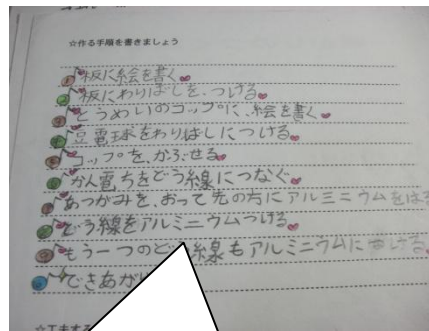 ☆作る手順を書きましょう
板に絵を書く
板にわりばしを、つける
とうめいのコップに、絵を書く
豆電球をわりばしにつける
コップを、かぶせる
かん電ちをどう線につなぐ
あつがみを、おって先の方にアルミニウムをはる
どう線をアルミニウムつける
もう一つのどう線もアルミニウムにつける
できあがり